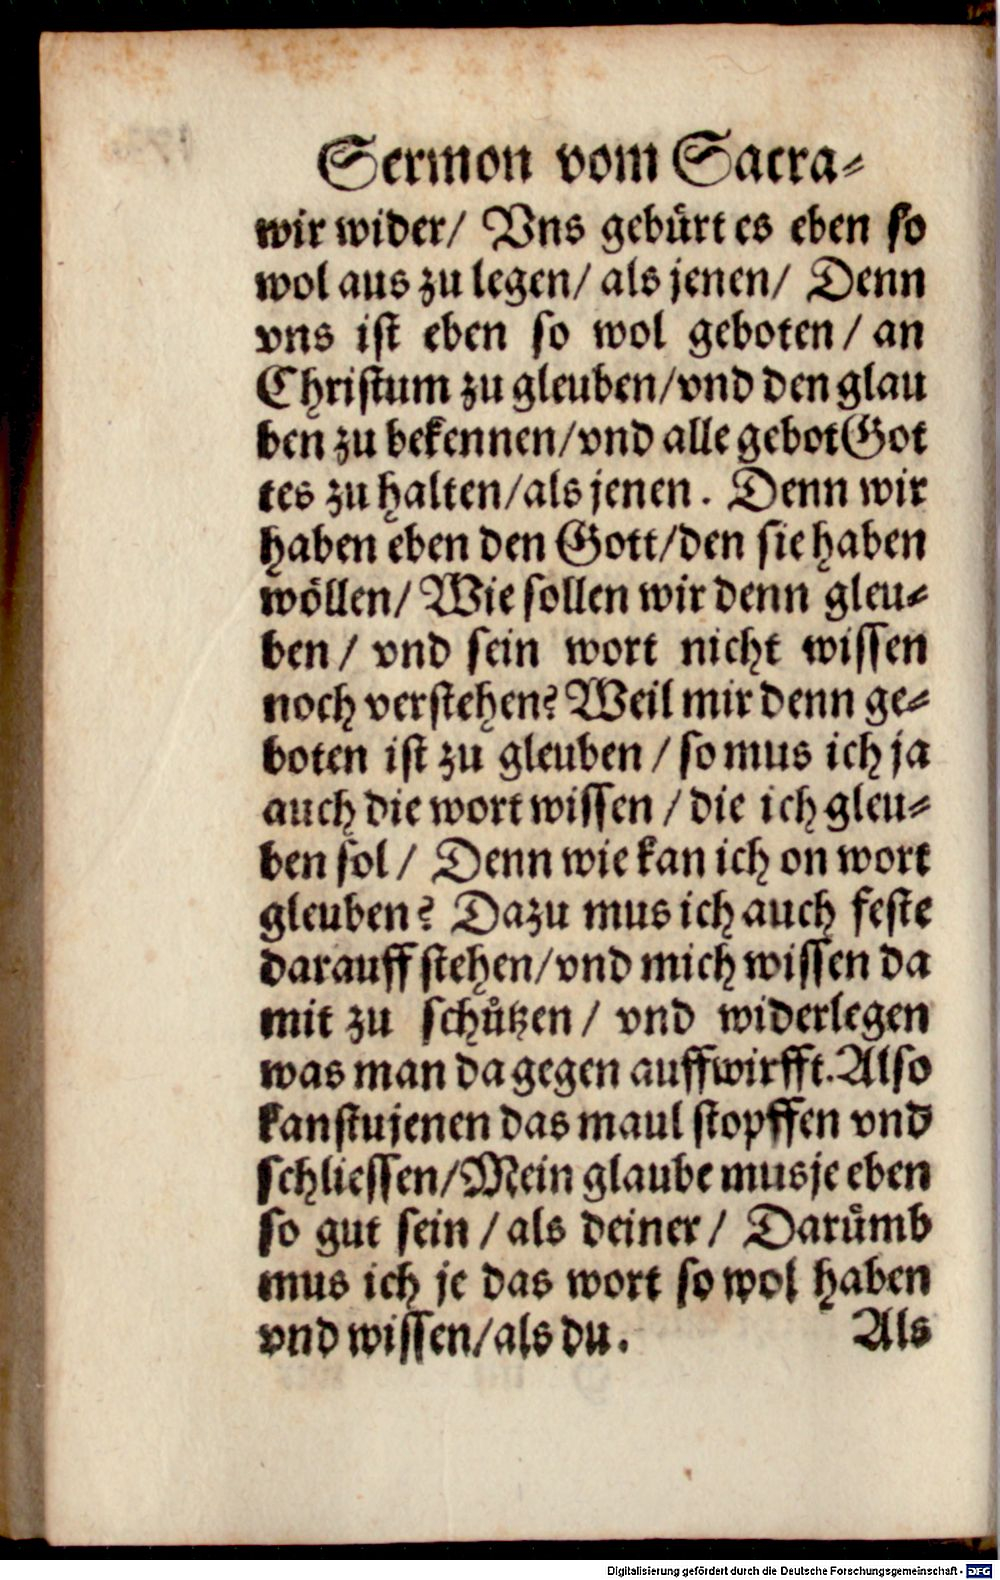 Sermon vom Sacra⸗
wir wider/ Vns gebürt es eben so
wol aus zu legen/ als jenen/ Denn
vns ist eben so wol geboten/ an
Christum zu gleuben/vnd den glau
ben zu bekennen/vnd alle gebot Got
tes zu halten/als jenen. Denn wir
haben eben den Gott/den sie haben
wöllen/ Wie sollen wir denn gleu⸗
ben/ vnd sein wort nicht wissen
noch verstehen? Weil mir denn ge⸗
boten ist zu gleuben/ so mus ich ja
auch die wort wissen/ die ich gleu⸗
ben sol/ Denn wie kan ich on wort
gleuben? Dazu mus ich auch feste
darauff stehen/vnd mich wissen da
mit zu schůtzen/ vnd widerlegen
was man da gegen auffwirfft. Also
kanstu jenen das maul stopffen vnd
schliessen/Mein glaube mus je eben
so gut sein/ als deiner/ Darůmb
mus ich je das wort so wol haben
vnd wissen/als du. Als
Digitalisierung gefördert durch die Deutsche Forschungsgemeinschaft - DFG